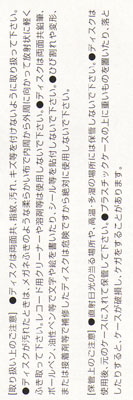 [取り扱い上のご注意] ●ディスクは両面共、指紋、汚れ、キズ等を付けないように取り扱って下さい。
●ディスクが汚れたときは、メガネふきのような柔らかい布で内周から外周に向かって放射状に軽く
ふき取って下さい。レコード用クリーナーや溶剤等は使用しないで下さい。●ディスクは両面共鉛筆、
ボールペン、油性ペン等で文字や絵を書いたり、シール等を貼付しないで下さい。●ひび割れや変形、
または接着剤等で補修したディスクは危険ですから絶対に使用しないで下さい。
[保管上のご注意] ●直射日光の当る場所や、高温・多湿の場所には保管しないで下さい。●ディスクは
使用後、元のケースに入れて保管して下さい。●プラスチックケースの上に重いものを置いたり、落と
したりすると、ケースが破損し、ケガをすることがあります。